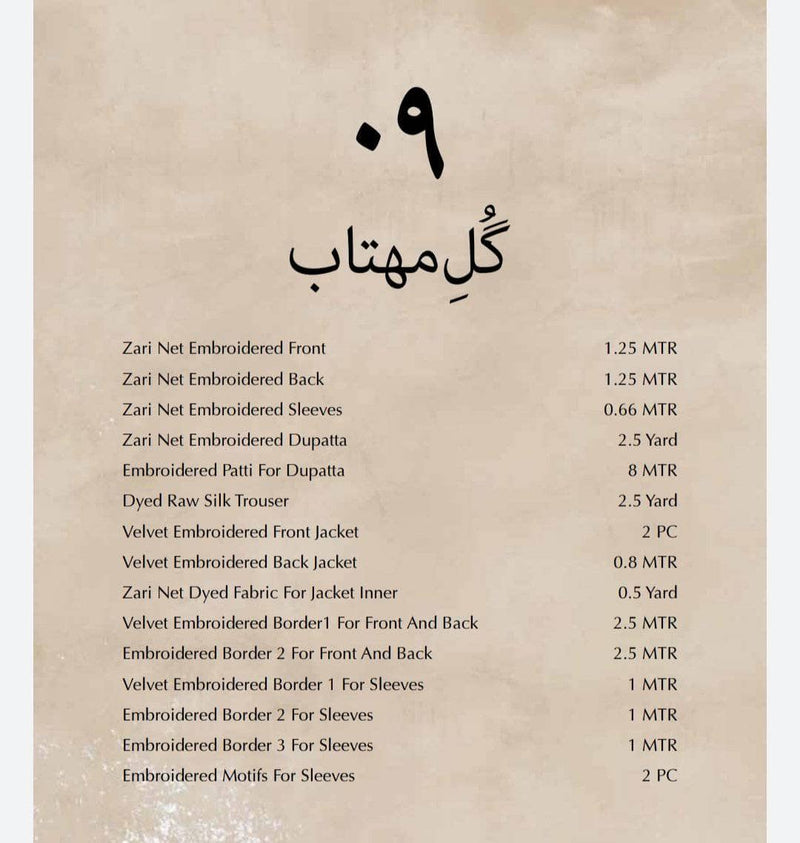 ۰۹
گُلِ مہتاب
Zari Net Embroidered Front 1.25 MTR
Zari Net Embroidered Back 1.25 MTR
Zari Net Embroidered Sleeves 0.66 MTR
Zari Net Embroidered Dupatta 2.5 Yard
Embroidered Patti For Dupatta 8 MTR
Dyed Raw Silk Trouser 2.5 Yard
Velvet Embroidered Front Jacket 2 PC
Velvet Embroidered Back Jacket 0.8 MTR
Zari Net Dyed Fabric For Jacket Inner 0.5 Yard
Velvet Embroidered Border1 For Front And Back 2.5 MTR
Embroidered Border 2 For Front And Back 2.5 MTR
Velvet Embroidered Border 1 For Sleeves 1 MTR
Embroidered Border 2 For Sleeves 1 MTR
Embroidered Border 3 For Sleeves 1 MTR
Embroidered Motifs For Sleeves 2 PC